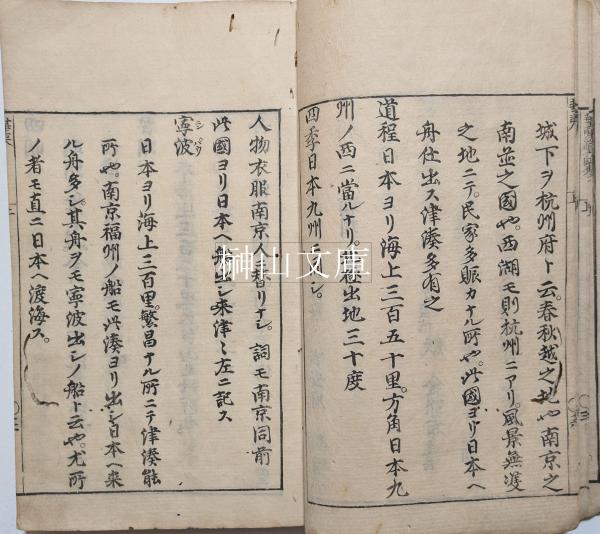 城下ヲ杭州府ト云。春秋越之地也。南京之
南並之國也。西湖モ則杭州ニアリ。風景無双
之地ニテ。民家多賑カナル所也。此國ヨリ日本ヘ
舟仕出ス津湊多有之
道程日本ヨリ海上三百五十里。方角日本九
州ノ西ニ當ルナリ。極出地三十度
四季日本九州
人物衣服南京人ニ替リナシ。詞モ南京同前
此國ヨリ日本ヘ船出シ来津々左ニ記ス
寧波
日本ヨリ海上三百里。繁昌ナル所ニテ津湊能
所也。南京福州ノ船モ此湊ヨリ出シ日本ヘ来
ル舟多シ。其舟ヲモ寧波出シノ船ト云也。尤所
ノ者モ直ニ日本ヘ渡海ス。
榊山文庫